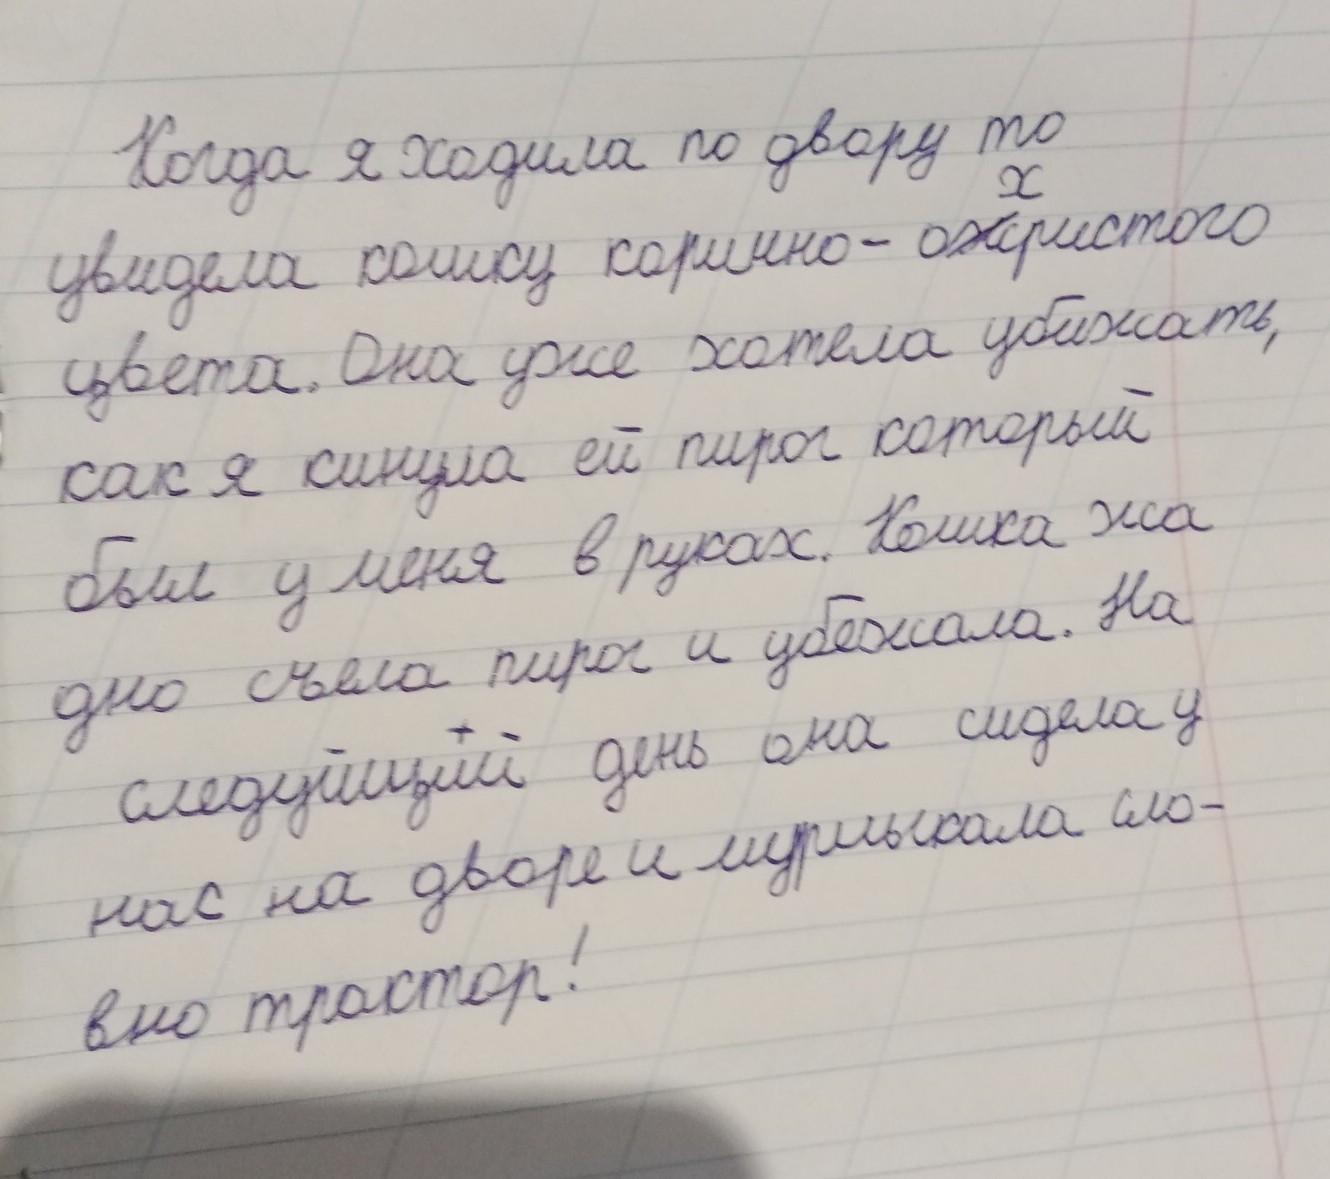 Когда я ходила по двору то
увидела кошку коришно-охристого
цвета. Она уже хотела убижать,
как я кинула ей пирог который
был у меня в руках. Кошка жа
дно съела пирог и убежала. На
следуйщий день она сидела у
нас на дворе и мурлыкала сло-
вно трактор!